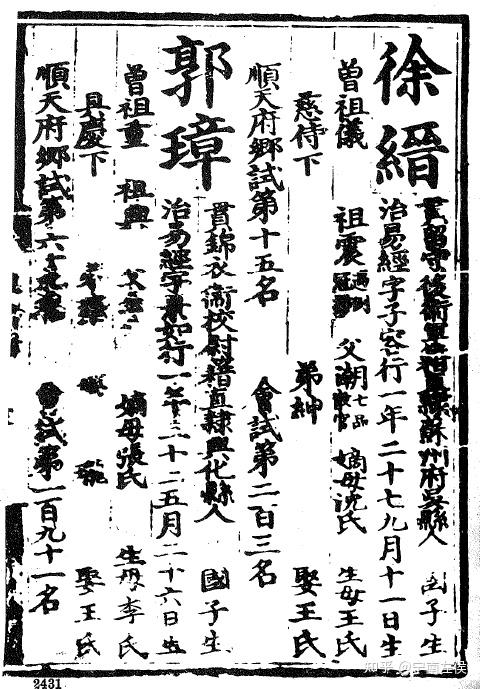 徐縉
貫留守後衛軍籍直隸蘇州府吳縣人 國子生
治易經字子容行一年二十七九月十一日生
曾祖儀 祖震 遇例冠帶 父潮 七品散官 嫡母沈氏 生母王氏
慈侍下 弟紳 娶王氏
順天府鄉試第十五名 會試第二百三名
郭璋
貫錦衣衛校尉籍直隸興化縣人 國子生
治易經字 如行一年三十二五月二十六日生
曾祖重 祖興 父 嫡母張氏 生母李氏
具慶下 娶王氏
順天府鄉試第六十 名 會試第一百九十一名
2431
知乎